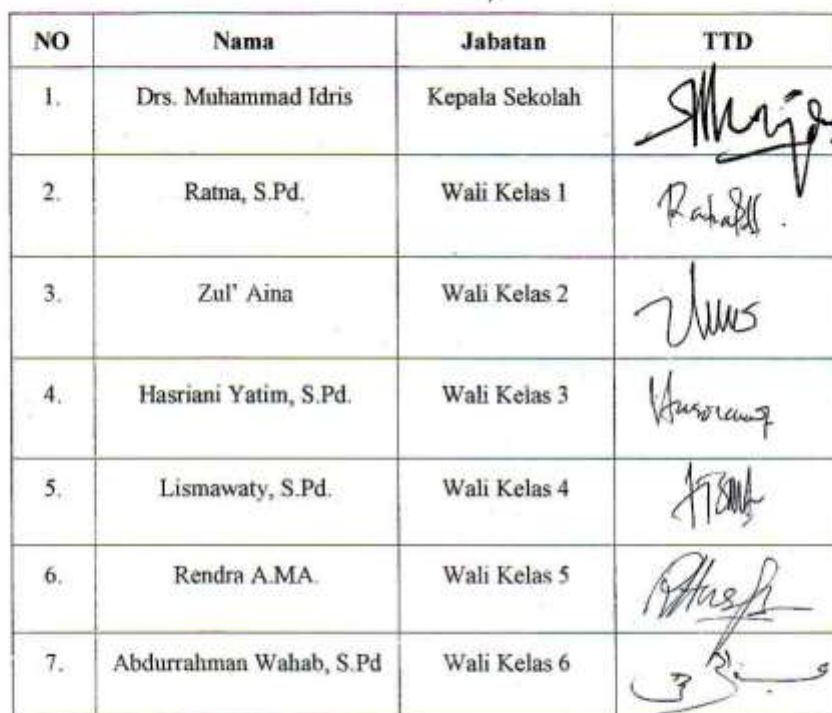 NO Nama Jabatan TTD
1. Drs. Muhammad Idris Kepala Sekolah
2. Ratna, S.Pd. Wali Kelas 1
3. Zul' Aina Wali Kelas 2
4. Hasriani Yatim, S.Pd. Wali Kelas 3
5. Lismawaty, S.Pd. Wali Kelas 4
6. Rendra A.MA. Wali Kelas 5
7. Abdurrahman Wahab, S.Pd Wali Kelas 6